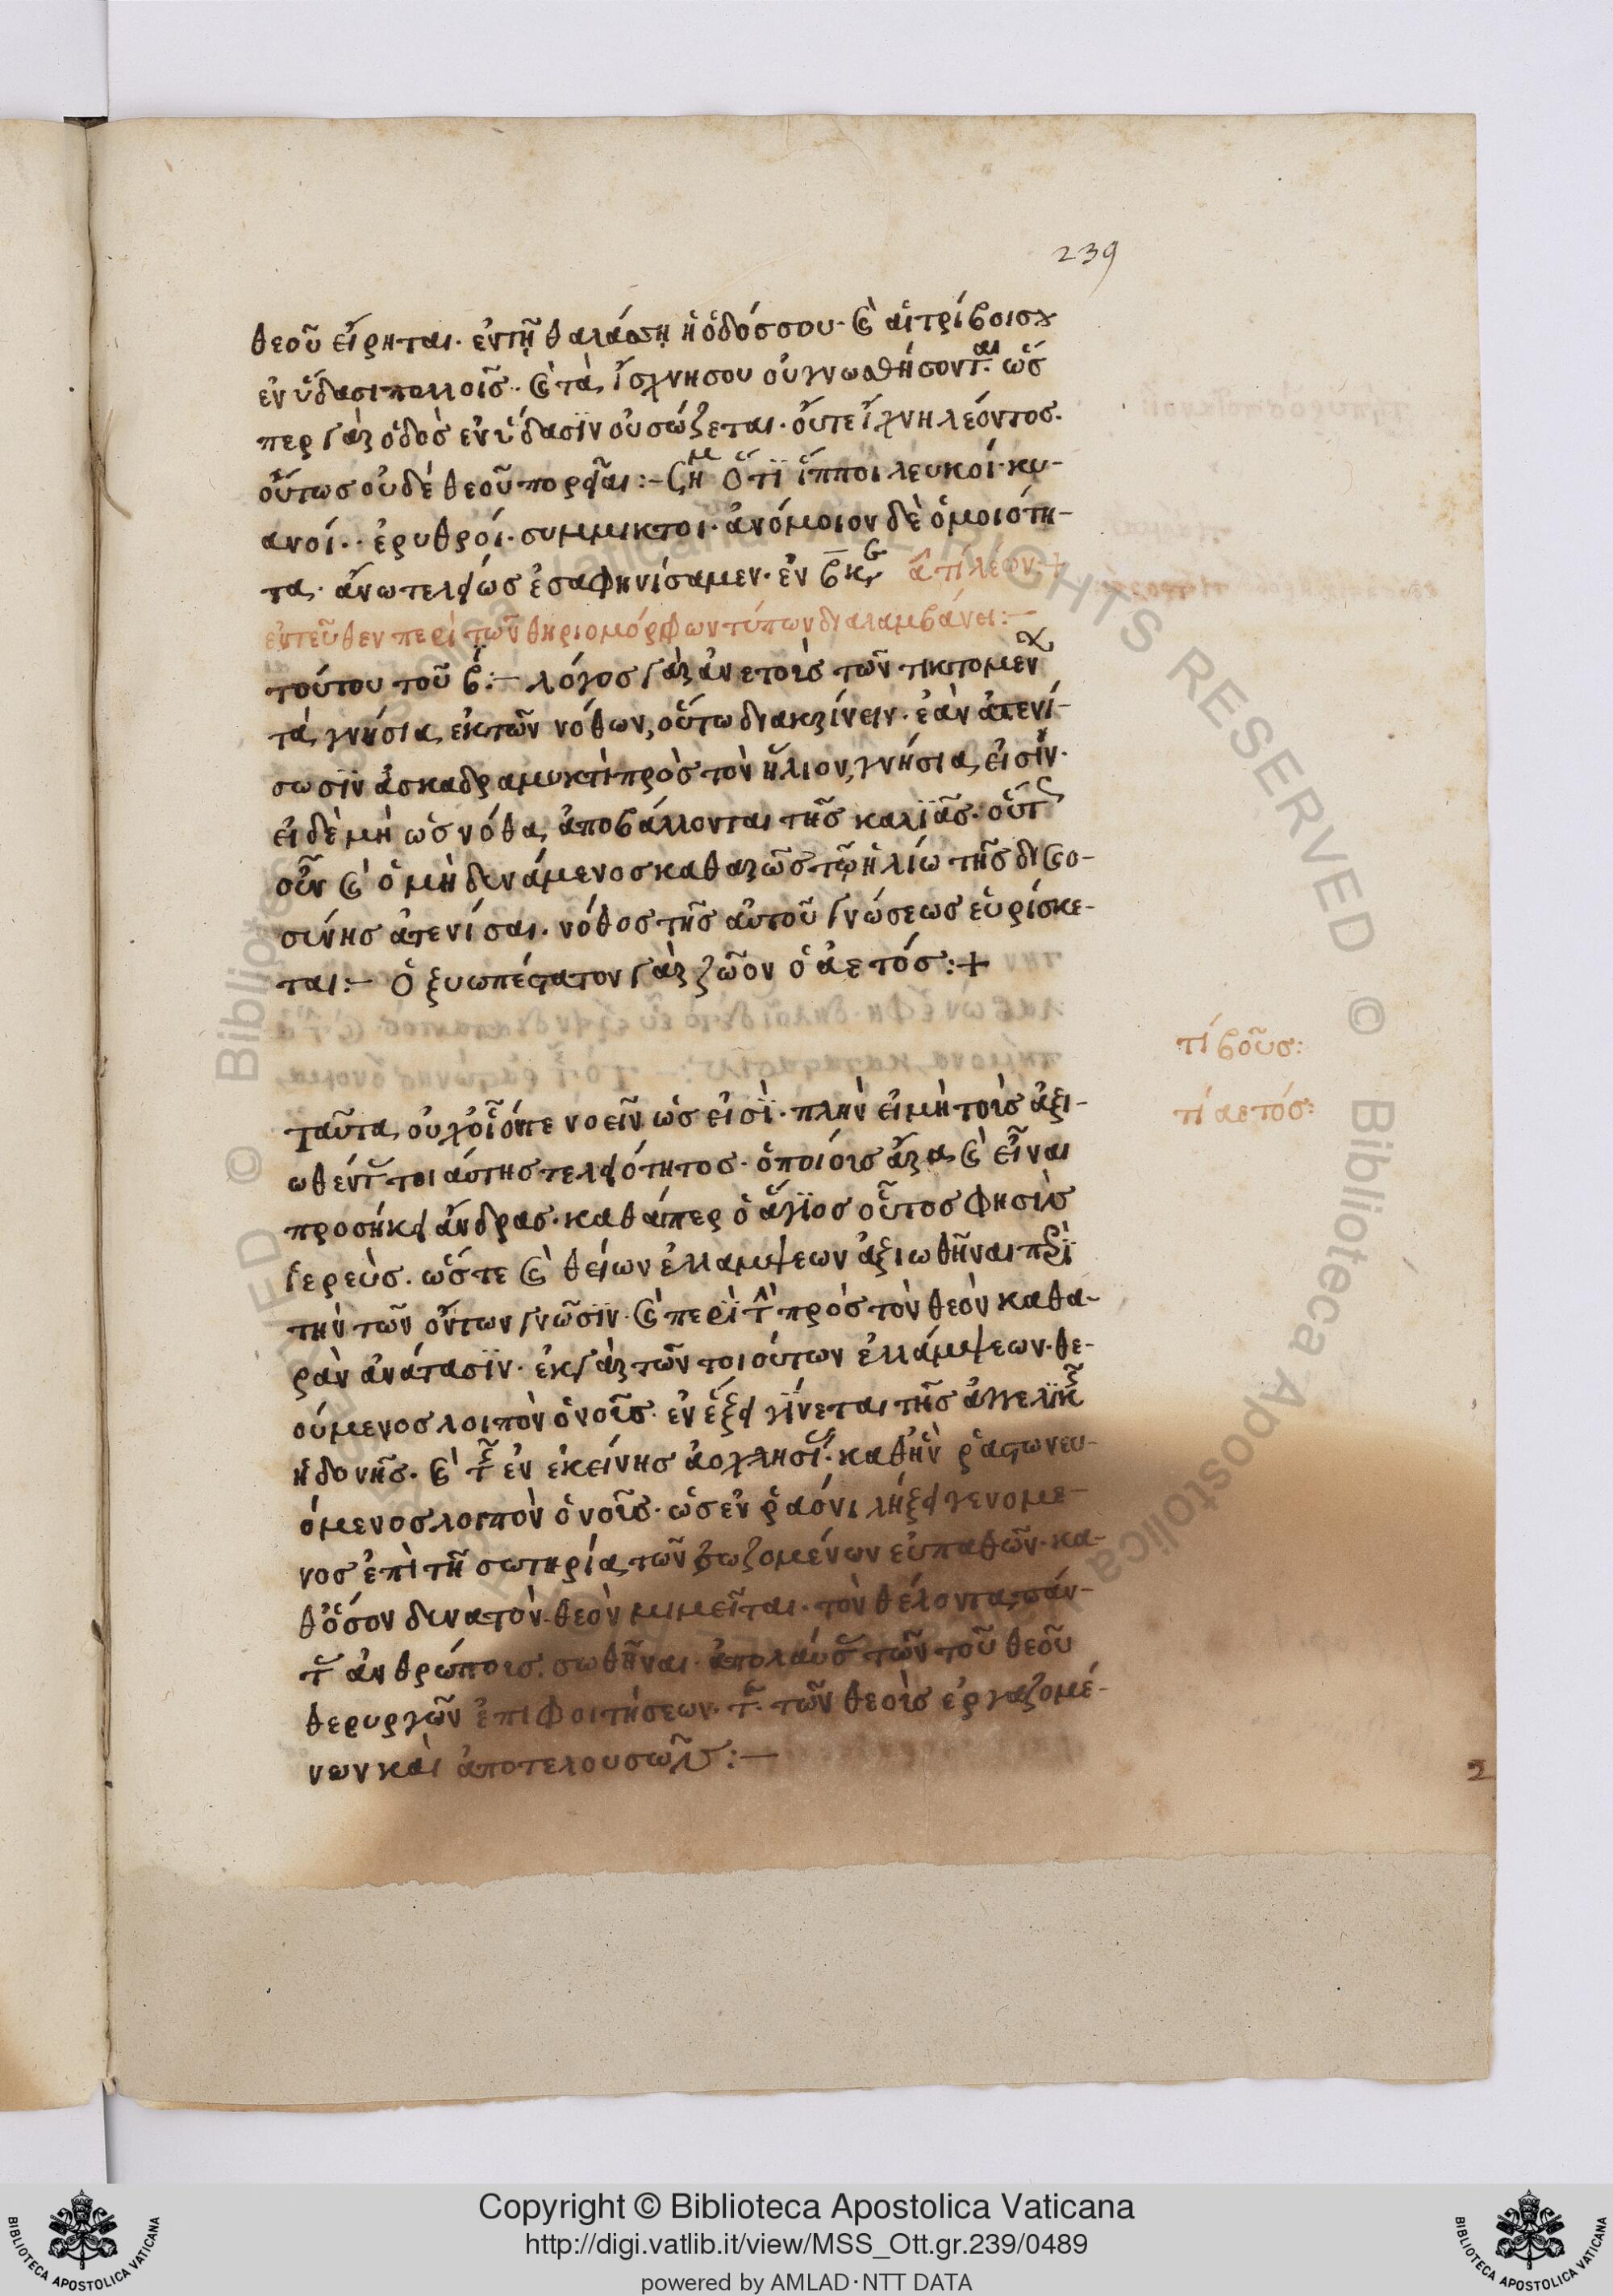 239
θεοῦ εἴρηται· ἐν τῇ θαλάσσῃ ἡ ὁδός σου· καὶ αἱ τρίβοι σου
ἐν ὕδασι πολλοῖς· καὶ τὰ ἴχνη σου οὐ γνωσθήσονται· ὥσ
περ γὰρ ὁδὸς ἐν ὕδασιν οὐ σώζεται· οὔτε ἴχνη λέοντος·
οὕτως οὐδὲ θεοῦ πορεῖαι:– Ση Ὅτι ἵπποι λευκοί· κυ-
ανοί·· ἐρυθροί· συμμικτοι· ἀνόμοιον δὲ ὁμοιότη-
τα· ἄνω τελείως ἐσαφηνίσαμεν· ἐν β κε τί λέων:+
ἐντεῦθεν περὶ τῶν θηριομόρφων τύπων διαλαμβάνει:–
τούτου τοῦ β:– λόγος γὰρ ἀνετοῖς τῶν τικτομένων
τὰ γνήσια ἐκ τῶν νόθων, οὕτω διακρίνειν· ἐὰν ἀτενί-
σωσιν ἀσκαδραμυκτὶ πρὸς τὸν ἥλιον, γνήσια εἰσίν·
εἰ δὲ μὴ ὡς νόθα ἀποβάλλονται τῆς καλιᾶς· οὕτως
οὖν καὶ ὁ μὴ δυνάμενος καθαρῶς τῷ ἡλίω τῆς δικαιο-
σύνης ἀτενίσαι· νόθος τῆς αὐτοῦ γνώσεως εὑρίσκε-
ται:– Ὀξυωπέστατον γὰρ ζῶον ὁ ἀετός:+
τί βοῦς:
τί αετός:
ταῦτα οὐχ οἷόν τε νοεῖν ὡς εἰσὶ· πλὴν εἰ μὴ τοῖς ἀξι-
ωθένταις τοιαύτης τελειότητος· ὁποίοις ἄρα καὶ εἶναι
προσήκει ἄνδρας· καθάπερ ὁ ἅγιος οὗτος φησὶν
ἱερεὺς· ὥστε καὶ θείων ἐλλαμψεων ἀξιωθῆναι περὶ
τὴν τῶν ὄντων γνῶσιν· καὶ περὶ τὴν πρὸς τὸν θεὸν καθα-
ρὰν ἀνάτασιν· ἐκ γὰρ τῶν τοιούτων ἐλλάμψεων· θε-
ούμενος λοιπὸν ὁ νοῦς· ἐν ἕξει γίνεται τῆς ἀγγελικῆς
ἡδονῆς· καὶ τῆς ἐν ἐκείνης ἀοχλησίας· καθ' ἣν ῥαστωνευ-
όμενος λοιπὸν ὁ νοῦς· ὡς ἐν ῥαόνι λήξει γενομε-
νος ἐπὶ τῇ σωτηρία τῶν σωζομένων εὐπαθῶν· κα-
θόσον δυνατὸν· θεὸν μιμεῖται· τὸν θέλοντα πάν-
τας ἀνθρώποις σωθῆναι· ἀπολαύσας τῶν τοῦ θεοῦ
θερυργῶν ἐπιφοιτήσεων· τῆς τῶν θεοὶς ἐργαζομέ-
νων καὶ ἀποτελουσῶν:–
2
Copyright © Biblioteca Apostolica Vaticana
http://digi.vatlib.it/view/MSS_Ott.gr.239/0489
powered by AMLAD·NTT DATA